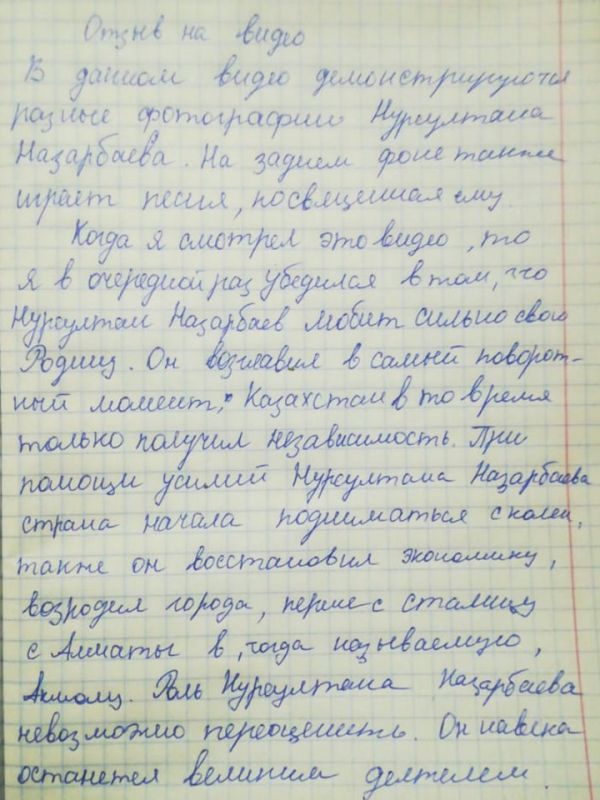 Отзыв на видео
В данном видео демонстрируются
разные фотографии Нурсултана
Назарбаева. На заднем фоне также
играет песня, посвященная ему.
Когда я смотрел это видео, то
я в очередной раз убедился в том, что
Нурсултан Назарбаев любит сильно свою
Родину. Он возглавил в самый поворот-
ный момент, Казахстан в то время
только получил независимость. При
помощи усилий Нурсултана Назарбаева
страна начала подниматься с колен,
также он восстановил экономику,
возродил города, перенес столицу
с Алматы в, тогда называемую,
Акмолу. Роль Нурсултана Назарбаева
невозможно переоценить. Он навека
останется великим деятелем.